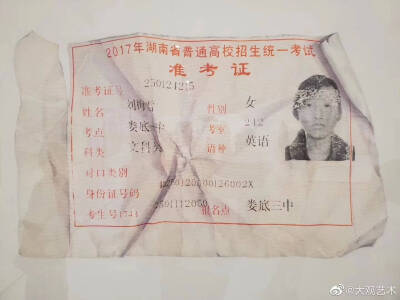 2017年湖南省普通高校招生统一考试
准考证
准考证号 250124215
姓名 性别 女
考点 娄底一中 考室 242
科类 文科类 语种 英语
对口类别
身份证号码
考生号 报名点 娄底三中
@大观艺术